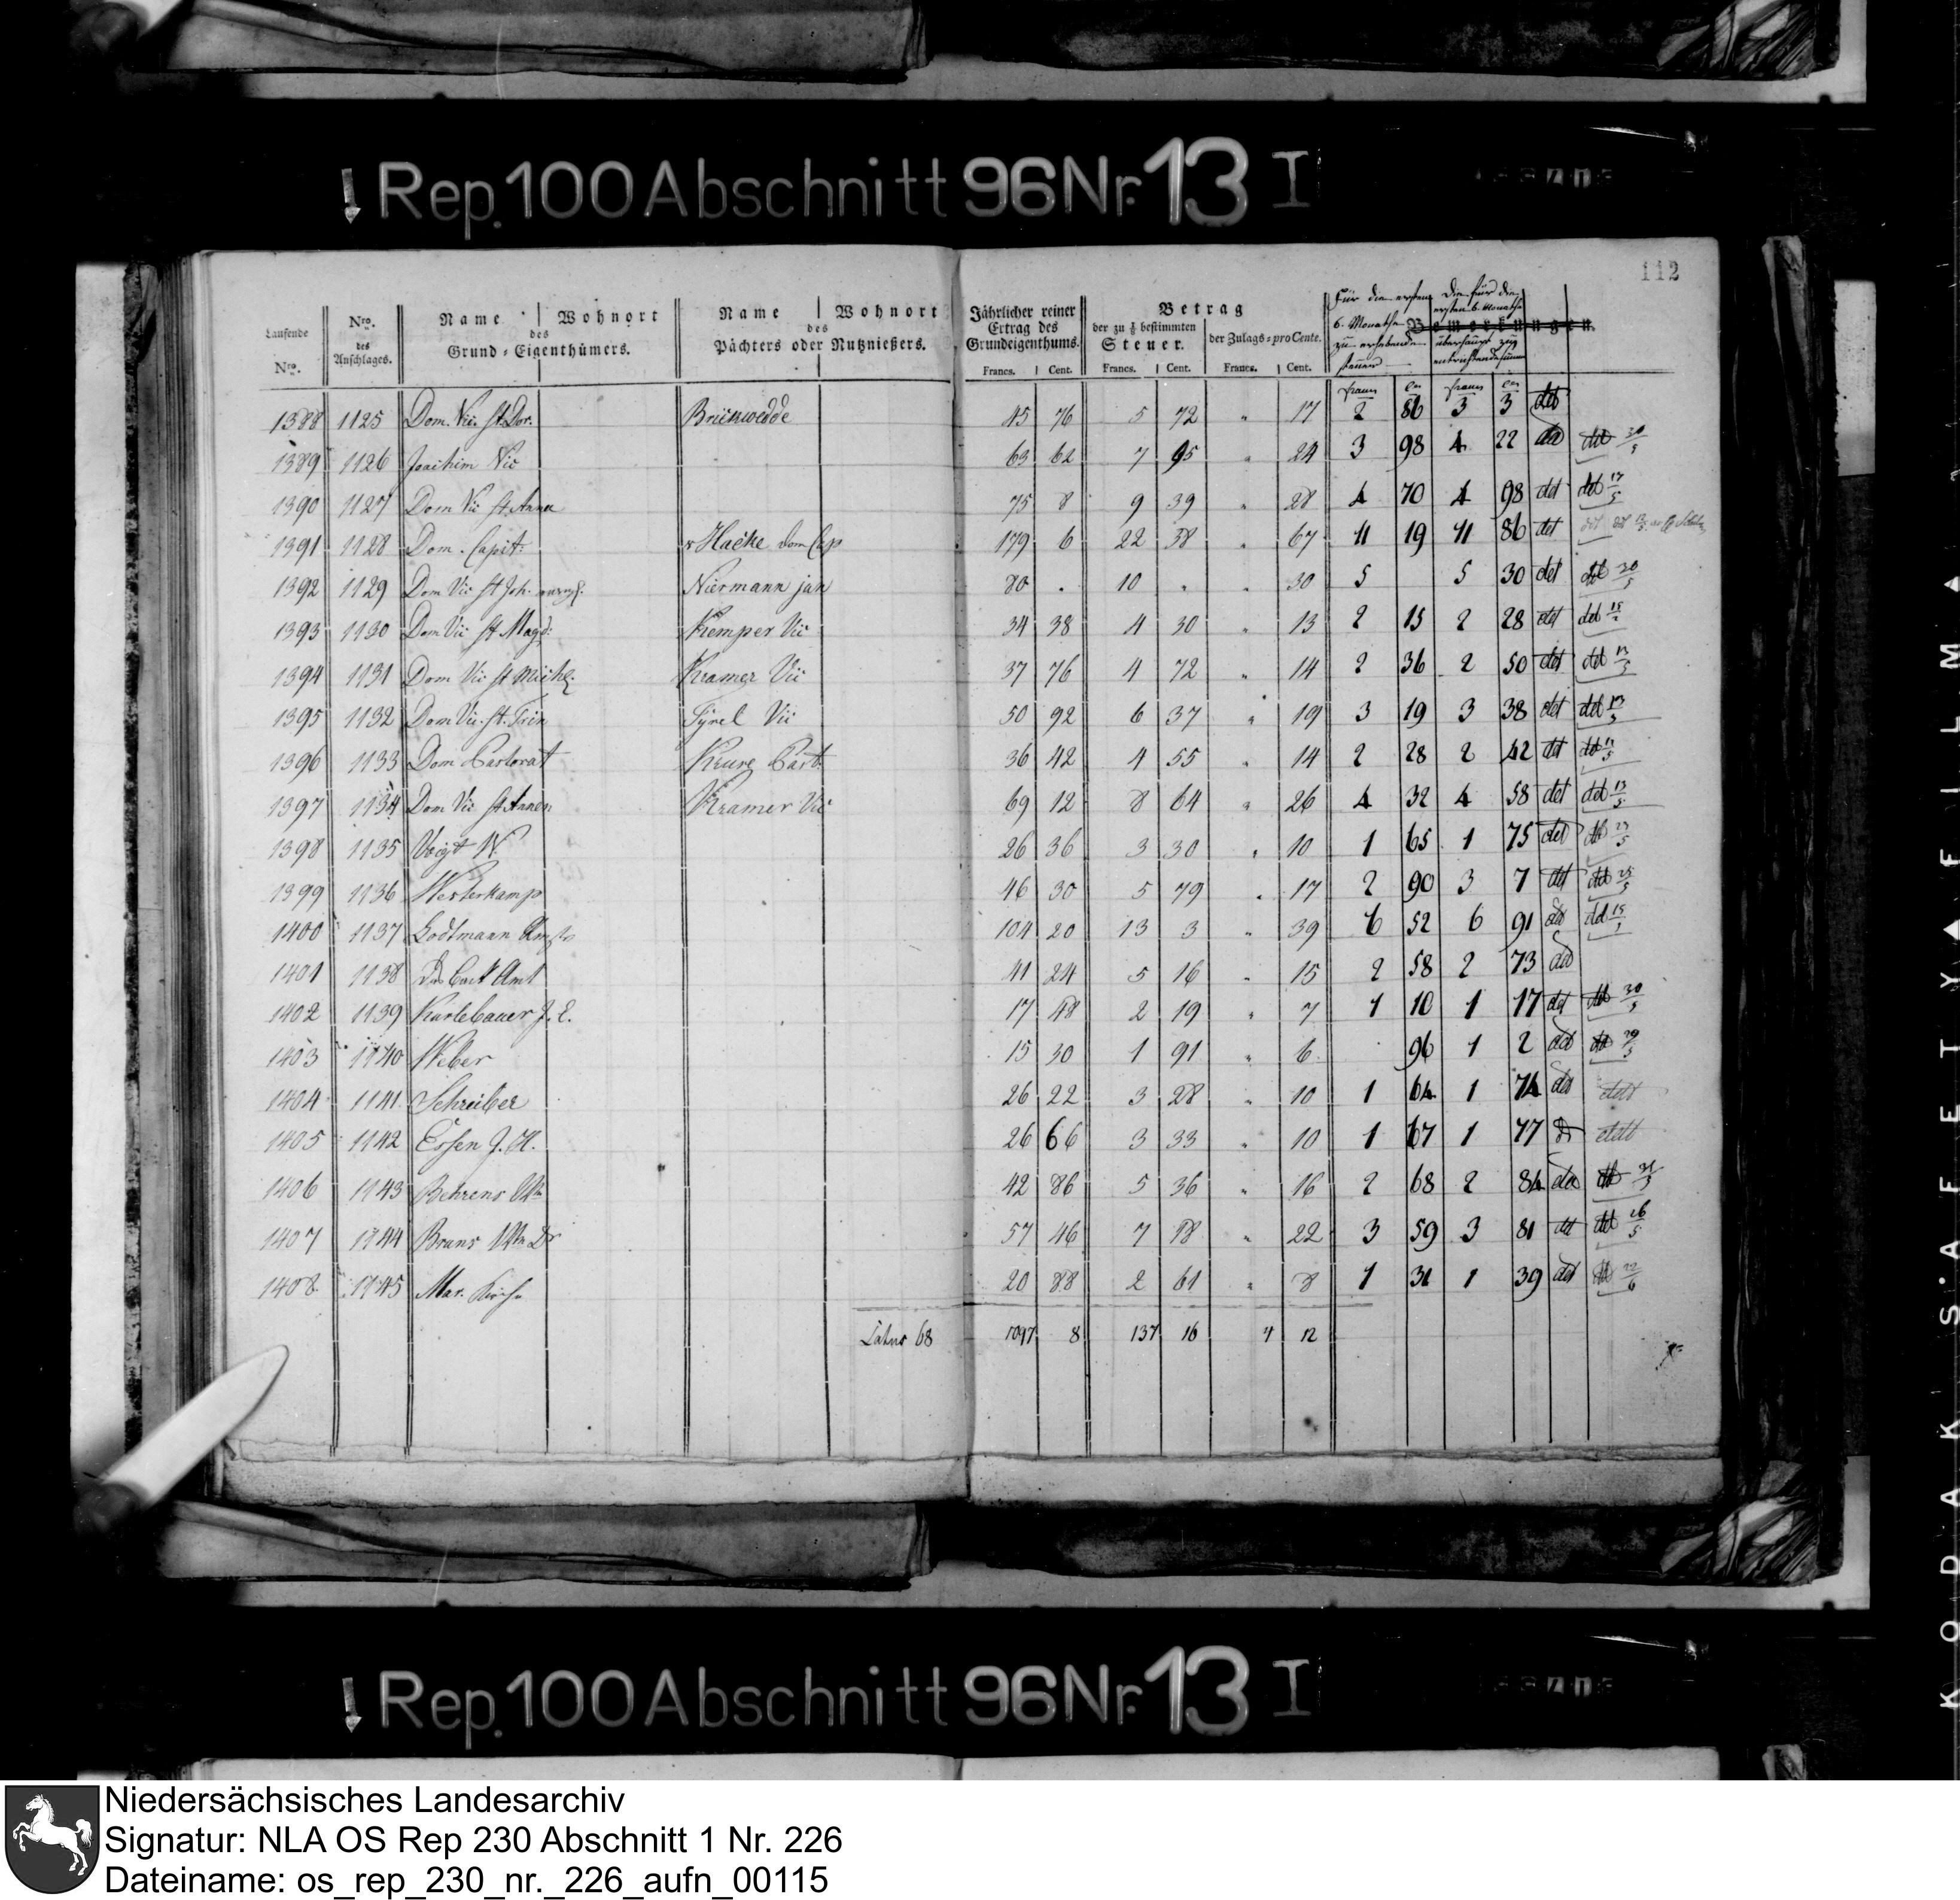 Rep. 100 Abschnitt 96 Nr. 13 I
112
Laufende Nro. | Nro. des Anschlages. | Name | Wohnort des Grund-Eigenthümers. | Name | Wohnort des Pächters oder Nutznießers. | Jährlicher reiner Ertrag des Grundeigenthums. Francs. Cent. | Betrag der zu ⅛ bestimmten Steuer. Francs. Cent. | der Zulags-pro Cente. Francs. Cent. | Für die ersten 6. Monathe zu erhebende Steuer | Die für die ersten 6. Monathe überhaupt zu entrichtende Summe | Bemerkungen.
1388 1125 Dom. Vic. St. Dor. Brickwedde 45 76 5 72 " 17 2 86 3 3 det
1389 1126 Joachim Vic 63 62 7 95 " 24 3 98 4 22 det det 30/5
1390 1127 Dom Vic St. Anna 75 8 9 39 " 28 4 70 4 98 det det 17/5
1391 1128 Dom. Capit: v Hacke dom Cap 179 6 22 38 " 67 11 19 11 86 det
1392 1129 Dom Vic St Joh. Niermann jun 80 . 10 " " 30 5 5 30 det det 30/5
1393 1130 Dom Vic St Magd: Kemper Vic 34 38 4 30 " 13 2 15 2 28 det det
1394 1131 Dom Vic St Mich. Kramer Vic 37 76 4 72 " 14 2 36 2 50 det det 13/5
1395 1132 Dom Vic. St. Trin Tynel Vic 50 92 6 37 " 19 3 19 3 38 det det
1396 1133 Dom Pastorat Kruse Past. 36 42 4 55 " 14 2 28 2 42 det det
1397 1134 Dom Vic St Annen Kramer Vic 69 12 8 64 " 26 4 32 4 58 det det 13/5
1398 1135 Voigt N. 26 36 3 30 " 10 1 65 1 75 det det 23/5
1399 1136 Westerkamp 46 30 5 79 " 17 2 90 3 7 det det 25/5
1400 1137 Lodtmann 104 20 13 3 " 39 6 52 6 91 det det
1401 1138 Amt 41 24 5 16 " 15 2 58 2 73 det
1402 1139 Karlebauer J. E. 17 48 2 19 " 7 1 10 1 17 det det 30/5
1403 1140 Weber 15 30 1 91 " 6 96 1 2 det det 29/5
1404 1141 Schreiber 26 22 3 28 " 10 1 64 1 74 det dett
1405 1142 Essen J. H. 26 66 3 33 " 10 1 67 1 77 dett
1406 1143 Behrens Ww 42 86 5 36 " 16 2 68 2 84 det det 31/5
1407 1144 Bruns Ww Dr 57 46 7 18 " 22 3 59 3 81 det det 26/5
1408 1145 Mar. Kirche 20 88 2 61 " 8 1 31 1 39 det det 22/6
Latus 68 1097 8 137 16 4 12
Rep. 100 Abschnitt 96 Nr. 13 I
KODAK SAFETY FILM
Niedersächsisches Landesarchiv
Signatur: NLA OS Rep 230 Abschnitt 1 Nr. 226
Dateiname: os_rep_230_nr._226_aufn_00115